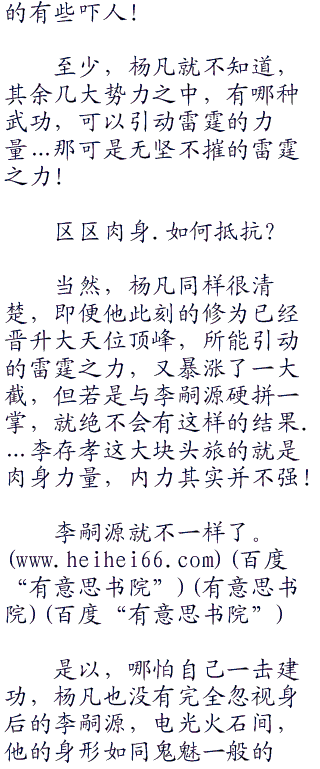 的有些吓人！
至少，杨凡就不知道，
其余几大势力之中，有哪种
武功，可以引动雷霆的力
量…那可是无坚不摧的雷霆
之力！
区区肉身.如何抵抗？
当然，杨凡同样很清
楚，即便他此刻的修为已经
晋升大天位顶峰，所能引动
的雷霆之力，又暴涨了一大
截，但若是与李嗣源硬拼一
掌，就绝不会有这样的结果.
…李存孝这大块头旅的就是
肉身力量，内力其实并不强！
李嗣源就不一样了。
(www.heihei66.com)(百度
“有意思书院”)(有意思书
院)(百度“有意思书院”)
是以，哪怕自己一击建
功，杨凡也没有完全忽视身
后的李嗣源，电光火石间，
他的身形如同鬼魅一般的